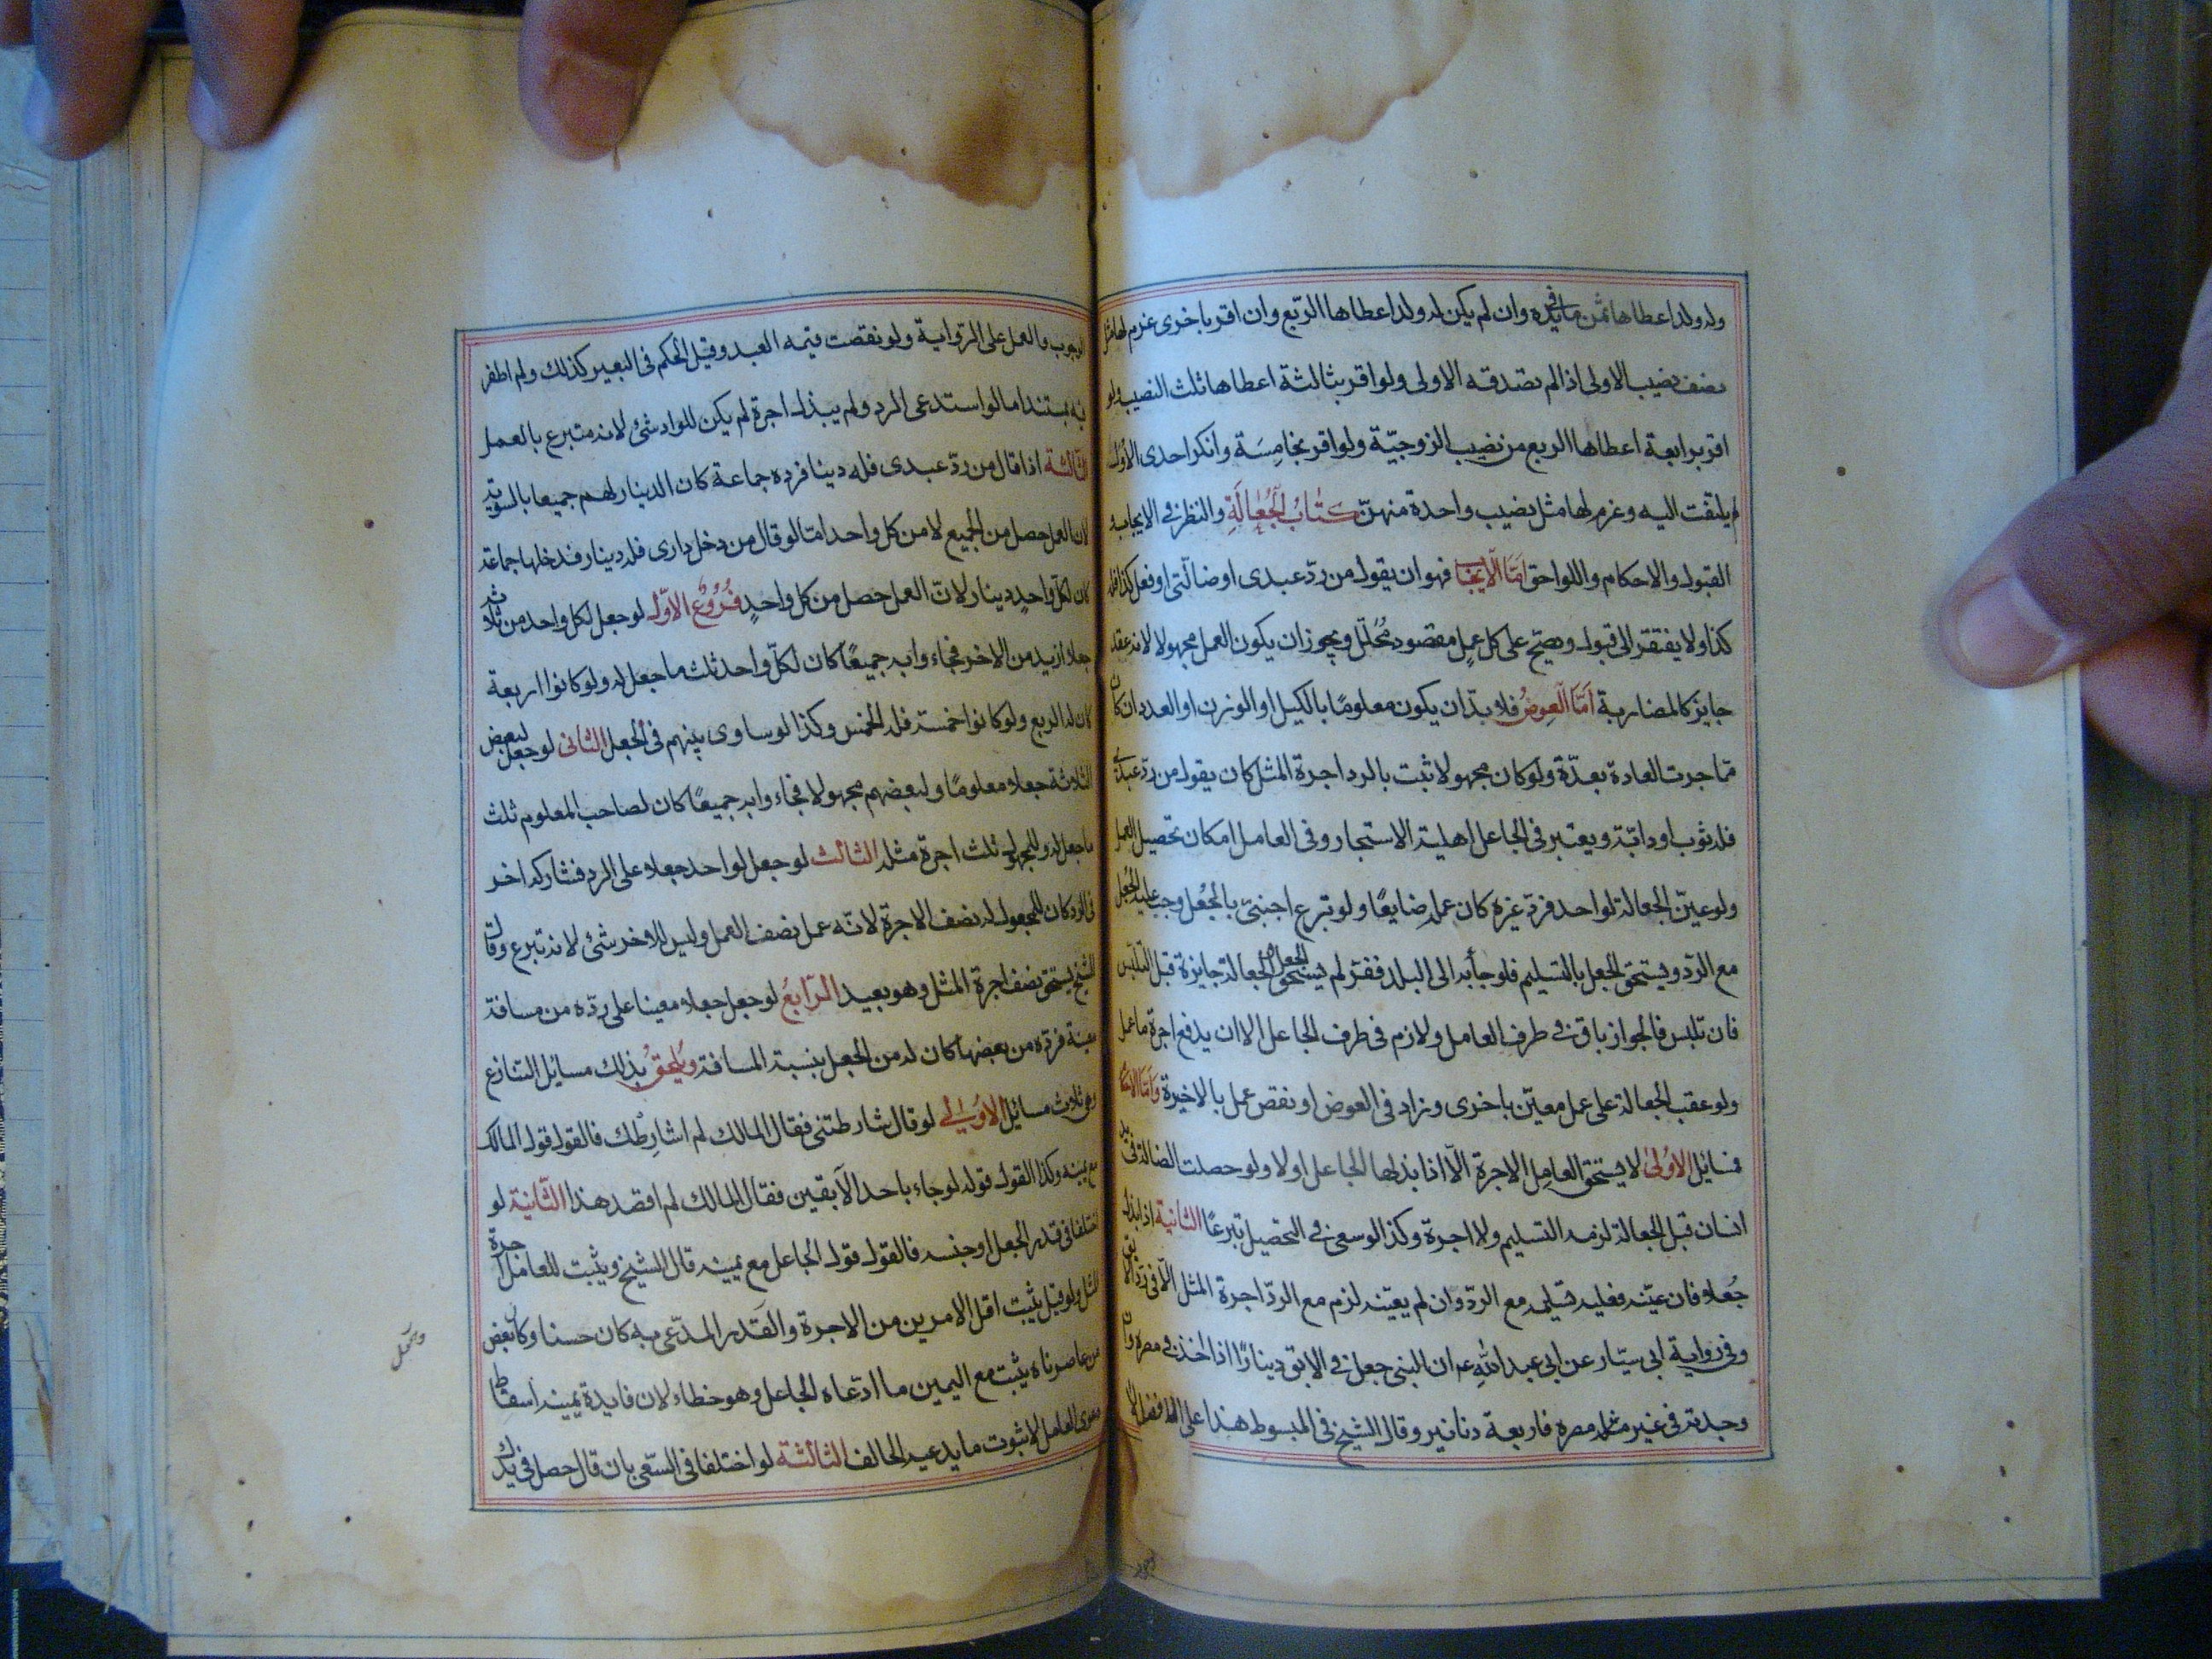 وله ولد اعطاها ثمن ما في يده وان لم يكن له ولد اعطاها الربّع وان اقر باخرى غرم لها مثل
نصف نصيب الاولى اذا لم تصدقه الاولى ولو اقر بثالثة اعطاها ثلث النصيب ولو
اقر برابعة اعطاها الربع من نصيب الزوجيّة ولو اقر بخامِسَة وانكر احدى الاوُل
لم يلتفت اليه وغرم لها مثل نصيب واحدة منهنّ كتابُ الجُعَالَةِ والنظر في الايجاب و
القبول والاحكام واللواحق امّا الايجاب فهو ان يقول من ردّ عبدى او ضالّتى او فعل كذا فله
كذا ولا يفتقر الى قبول ويصحّ على كل عملٍ مقصود مُحلّل ويجوز ان يكون العمل مجهولا لانه عقد
جايز كالمضاربة امّا العِوضُ فلا بدّ ان يكون معلومًا بالكيل او الوزن او العدد ان كان
ممّا جرت العادة بعدّة ولو كان مجهولا ثبت بالرد اجرة المثل كان يقول من ردّ عبدى
فله ثوب او دابّة ويعتبر فى الجاعل اهلية الاستيجار وفى العامل امكان تحصيل العمل
ولو عيّن الجعالة لواحد فردّ غيره كان عمله ضايعًا ولو تبرع اجنبىّ بالجُعل وجب عليه الجُعل
مع الردّ ويستحق الجعل بالتسليم فلو جاء به الى البلد ففرّ لم يستحق الجعل الجعالة جايزة قبل التلبّس
فان تلبس فالجواز باق فى طرف العامل ولازم فى طرف الجاعل الا ان يدفع اجرة ما عمل
ولو عقب الجعالة على عمل معيّن باخرى وزاد فى العوض او نقص عمل بالاخيرة وامّا الاحكام
فمسائل الاوُلىٰ لا يستحق العامِل الاجرة الّا اذا بذلها الجاعل اولا ولو حصلت الضالة فى يد
انسان قبل الجعالة لزمه التسليم ولا اجرة وكذا لو سعى فى التحصيل تبرعًا الثانية اذا بذل
جُعلا فان عيّنه فعليه تسليمه مع الردّ وان لم يعيّنه لزم مع الردّ اجرة المثل الّا فى ردّ الآبق
وفى رواية ابى سيّار عن ابى عبد الله ع ان النبى جعل فى الابق دينارًا اذا اخذ فى مصره وان
وجدته فى غير مصره فاربعة دنانير وقال الشيخ فى المبسوط هذا على الافضل لا
الوجوب والعمل على الرّواية ولو نقصت قيمه العبد وقيل الحكم فى البعير كذلك ولم اظفر
فيه بمستند اما لو استدعى الرد ولم يبذل اجرة لم يكن للراد شئ لانه متبرع بالعمل
الثالثة اذا قال من ردّ عبدى فله دينار فرده جماعة كان الدينار لهم جميعا بالسوية
لان العمل حصل من الجميع لا من كل واحد امّا لو قال من دخل دارى فله دينار فدخلها جماعة
كان لكلّ واحدٍ دينار لانّ العمل حصل من كل واحدٍ فُرُوعُ الاوّل لو جعل لكل واحد من ثلاثة
جعلا ازيد من الاخر فجاءوا به جميعًا كان لكلّ واحد ثلث ما جعل له ولو كانوا اربعة
كان له الربع ولو كانوا خمسة فله الخمس وكذا لو ساوى بينهم فى الجعل الثانى لو جعل لبعض
الثلاثة جعلا معلومًا ولبعضهم مجهولا فجاءوا به جميعًا كان لصاحب المعلوم ثلث
ما جعل له وللمجهول ثلث اجرة مثله الثالث لو جعل لواحد جعلا على الرد فشاركه اخر
فى الرد كان للمجعول له نصف الاجرة لانّه عمل نصف العمل وليس للاخر شئ لانه تبرع وقال
الشيخ يستحق نصف اجرة المثل وهو بعيد الرّابعُ لو جعل جعلا معينا على ردّه من مسافة
معينة فردّه من بعضها كان له من الجعل بنسبة المسافة ويُلحقُ بذلك مسايل التنازع
وهى ثلاث مسائل الاوُلىٰ لو قال شارطتنى فقال المالك لم اشارِطك فالقول قول المالك
مع يمينه وكذا القول قوله لو جاء باحد الآبقين فقال المالك لم اقصد هذا الثّانية لو
اختلفا فى قدر الجعل او جنسه فالقول قول الجاعل مع يمينه قال الشيخ ويثبت للعامل اجرة
المثل ولو قيل يثبت اقل الامرين من الاجرة والقَدر المدّعى به كان حسنا وكان بعض
من عاصرناه يثبت مع اليمين ما ادّعاه الجاعل وهو خطاء لان فايدة يمينه اسقاط
دعوى العامل لا ثبوت ما يدعيه الحالف الثالثة لو اختلفا فى السّعى بان قال حصل فى يدك